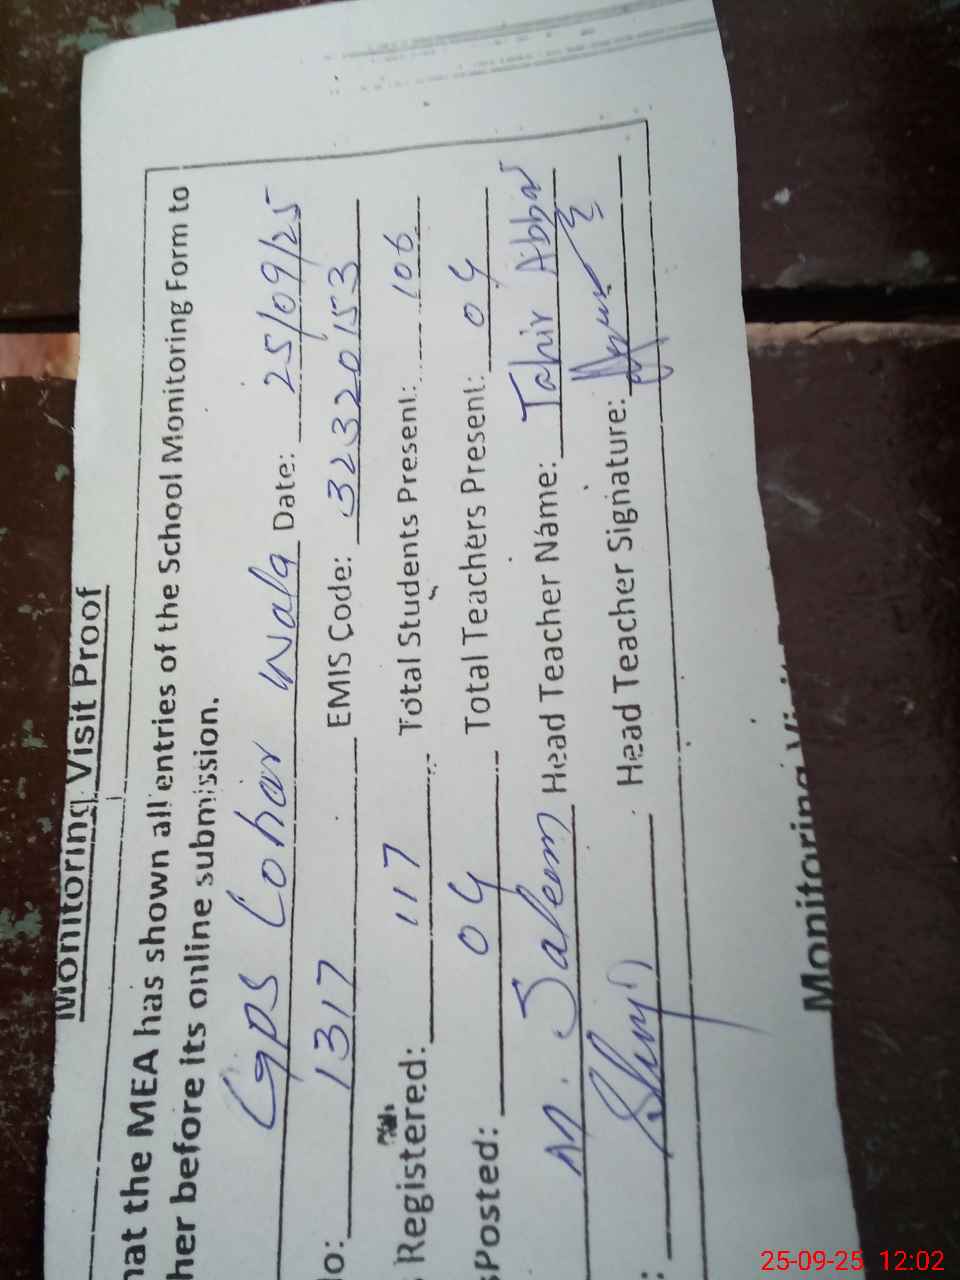 Monitoring Visit Proof
hat the MEA has shown all entries of the School Monitoring Form to
her before its online submission.
GPS Lohar Wala Date: 25/09/25
No: 1317 EMIS Code: 32320153
Registered: 117 Total Students Present: 106
sPosted: 04 Total Teachers Present: 04
M. Saleem Head Teacher Name: Tahir Abbas
: Head Teacher Signature:
Monitoring Visit
25-09-25 12:02